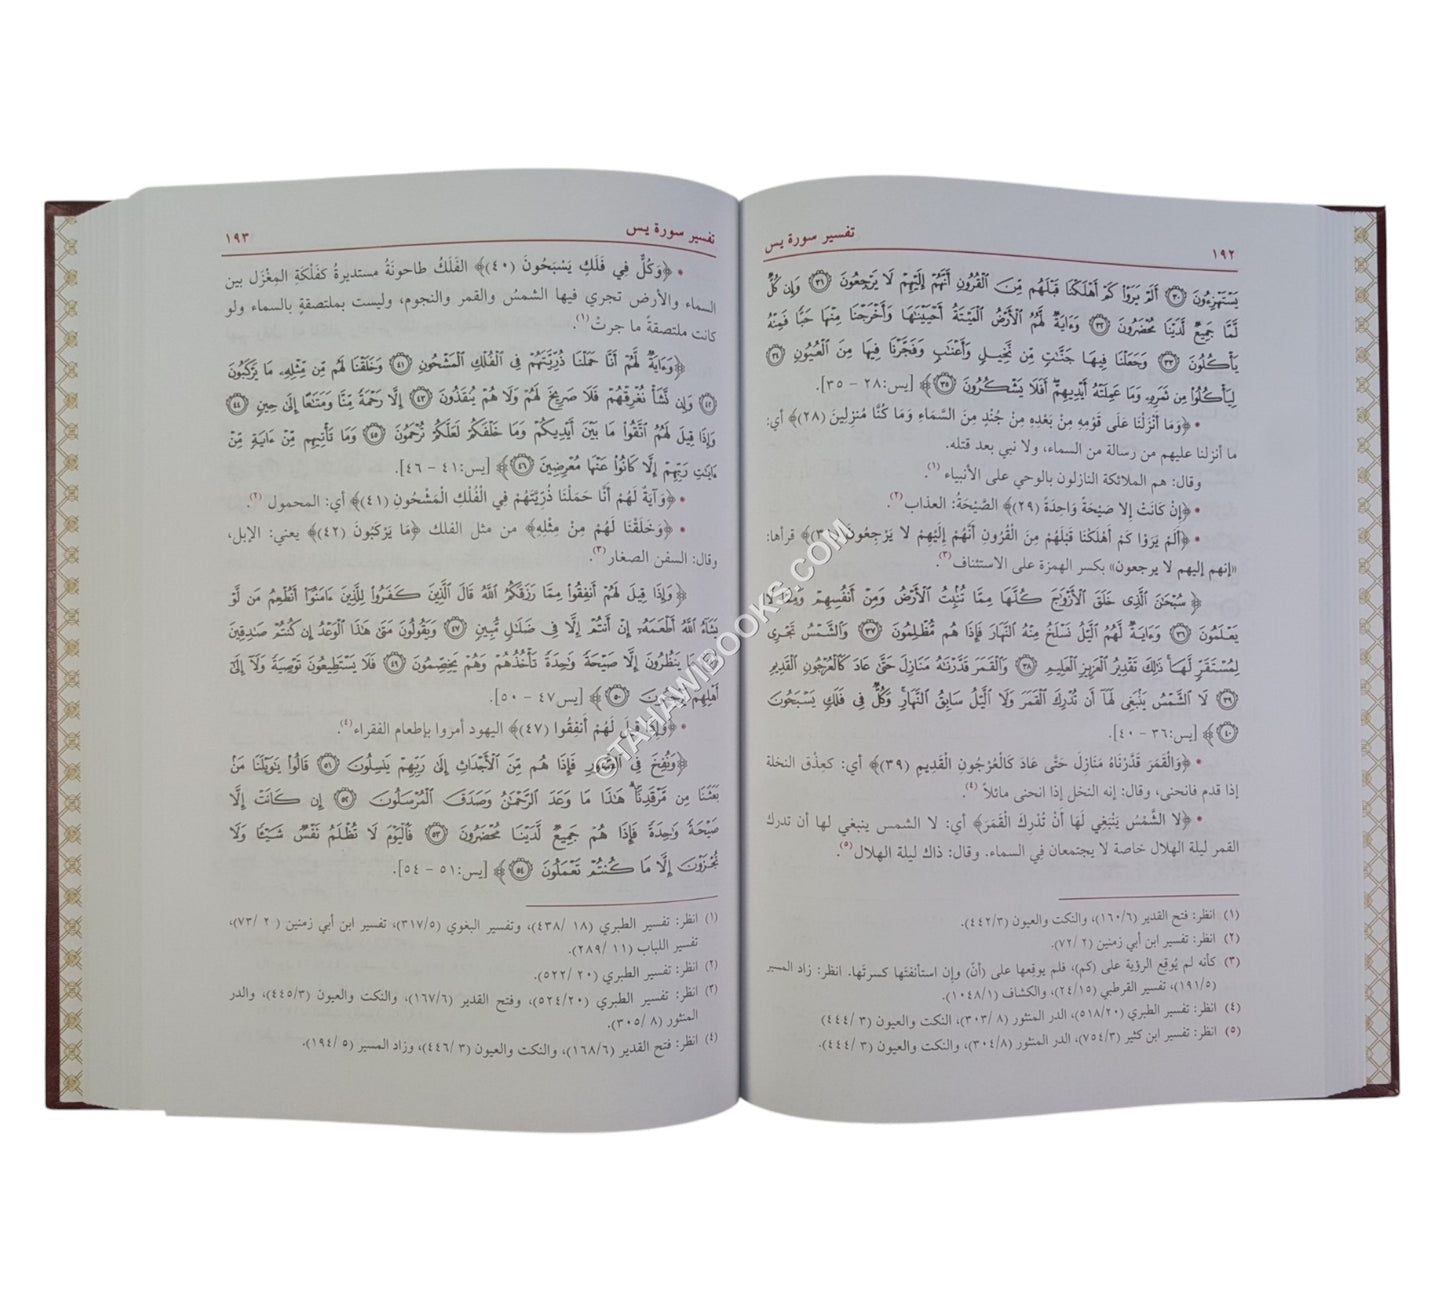 ١٩٢ تفسير سورة يس
يَسْتَهْزِءُونَ ٣٠ أَلَمْ يَرَوْا۟ كَمْ أَهْلَكْنَا قَبْلَهُم مِّنَ ٱلْقُرُونِ أَنَّهُمْ إِلَيْهِمْ لَا يَرْجِعُونَ ٣١ وَإِن كُلٌّ
لَّمَّا جَمِيعٌ لَّدَيْنَا مُحْضَرُونَ ٣٢ وَءَايَةٌ لَّهُمُ ٱلْأَرْضُ ٱلْمَيْتَةُ أَحْيَيْنَٰهَا وَأَخْرَجْنَا مِنْهَا حَبًّا فَمِنْهُ
يَأْكُلُونَ ٣٣ وَجَعَلْنَا فِيهَا جَنَّٰتٍ مِّن نَّخِيلٍ وَأَعْنَٰبٍ وَفَجَّرْنَا فِيهَا مِنَ ٱلْعُيُونِ ٣٤
لِيَأْكُلُوا۟ مِن ثَمَرِهِۦ وَمَا عَمِلَتْهُ أَيْدِيهِمْ أَفَلَا يَشْكُرُونَ ٣٥﴾ [يس: ٢٨ - ٣٥].
• ﴿وَمَا أَنْزَلْنَا عَلَى قَوْمِهِ مِنْ بَعْدِهِ مِنْ جُنْدٍ مِنَ السَّمَاءِ وَمَا كُنَّا مُنزِلِينَ (٢٨)﴾ أي:
ما أنزلنا عليهم من رسالة من السماء، ولا نبي بعد قتله.
وقال: هم الملائكة النازلون بالوحي على الأنبياء (١).
• ﴿إِنْ كَانَتْ إِلا صَيْحَةً وَاحِدَةً (٢٩)﴾ الصَّيْحَةُ: العذاب (٢).
• ﴿أَلَمْ يَرَوْا كَمْ أَهْلَكْنَا قَبْلَهُمْ مِنَ الْقُرُونِ أَنَّهُمْ إِلَيْهِمْ لا يَرْجِعُونَ (٣١)﴾ قرأها:
«إنهم إليهم لا يرجعون» بكسر الهمزة على الاستئناف (٣).
﴿سُبْحَٰنَ ٱلَّذِى خَلَقَ ٱلْأَزْوَٰجَ كُلَّهَا مِمَّا تُنۢبِتُ ٱلْأَرْضُ وَمِنْ أَنفُسِهِمْ وَمِمَّا لَا
يَعْلَمُونَ ٣٦ وَءَايَةٌ لَّهُمُ ٱلَّيْلُ نَسْلَخُ مِنْهُ ٱلنَّهَارَ فَإِذَا هُم مُّظْلِمُونَ ٣٧ وَٱلشَّمْسُ تَجْرِى
لِمُسْتَقَرٍّ لَّهَا ذَٰلِكَ تَقْدِيرُ ٱلْعَزِيزِ ٱلْعَلِيمِ ٣٨ وَٱلْقَمَرَ قَدَّرْنَٰهُ مَنَازِلَ حَتَّىٰ عَادَ كَٱلْعُرْجُونِ ٱلْقَدِيمِ
٣٩ لَا ٱلشَّمْسُ يَنۢبَغِى لَهَآ أَن تُدْرِكَ ٱلْقَمَرَ وَلَا ٱلَّيْلُ سَابِقُ ٱلنَّهَارِ وَكُلٌّ فِى فَلَكٍ يَسْبَحُونَ
٤٠﴾ [يس: ٣٦ - ٤٠].
• ﴿وَالْقَمَرَ قَدَّرْنَاهُ مَنَازِلَ حَتَّى عَادَ كَالْعُرْجُونِ الْقَدِيمِ (٣٩)﴾ أي: كعِذْق النخلة
إذا قدم فانحنى، وقال: إنه النخل إذا انحنى مائلاً (٤).
• ﴿لا الشَّمْسُ يَنْبَغِي لَهَا أَنْ تُدْرِكَ الْقَمَرَ﴾ أي: لا الشمس ينبغي لها أن تدرك
القمر ليلة الهلال خاصة لا يجتمعان فِي السماء. وقال: ذاك ليلة الهلال (٥).
(١) انظر: فتح القدير (٦/ ١٦٠)، والنكت والعيون (٣/ ٤٤٢).
(٢) انظر: تفسير ابن أبي زمنين (٢/ ٧٢).
(٣) كأنه لم يُوقِع الرؤية على (كم)، فلم يوقِعها على (أنّ) وإن استأنفتَها كسرتَها. انظر: زاد المسير
(٥/ ١٩١)، تفسير القرطبي (١٥/ ٢٤)، والكشاف (١/ ١٠٤٨).
(٤) انظر: تفسير الطبري (٢٠/ ٥١٨)، الدر المنثور (٨/ ٣٠٣)، النكت والعيون (٣/ ٤٤٤)
(٥) انظر: تفسير ابن كثير (٣/ ٧٥٤)، الدر المنثور (٨/ ٣٠٤)، والنكت والعيون (٣/ ٤٤٤).
تفسير سورة يس ١٩٣
• ﴿وَكُلٌّ فِي فَلَكٍ يَسْبَحُونَ (٤٠)﴾ الفَلَكُ طاحونَةُ مستديرةُ كفَلْكَةِ المِغْزَل بين
السماء والأرض تجري فيها الشمسُ والقمر والنجوم، وليست بملتصقةٍ بالسماء ولو
كانت ملتصقةً ما جرتْ (١).
﴿وَءَايَةٌ لَّهُمْ أَنَّا حَمَلْنَا ذُرِّيَّتَهُمْ فِى ٱلْفُلْكِ ٱلْمَشْحُونِ ٤١ وَخَلَقْنَا لَهُم مِّن مِّثْلِهِۦ مَا يَرْكَبُونَ
٤٢ وَإِن نَّشَأْ نُغْرِقْهُمْ فَلَا صَرِيخَ لَهُمْ وَلَا هُمْ يُنقَذُونَ ٤٣ إِلَّا رَحْمَةً مِّنَّا وَمَتَٰعًا إِلَىٰ حِينٍ ٤٤
وَإِذَا قِيلَ لَهُمُ ٱتَّقُوا۟ مَا بَيْنَ أَيْدِيكُمْ وَمَا خَلْفَكُمْ لَعَلَّكُمْ تُرْحَمُونَ ٤٥ وَمَا تَأْتِيهِم مِّنْ ءَايَةٍ مِّنْ
ءَايَٰتِ رَبِّهِمْ إِلَّا كَانُوا۟ عَنْهَا مُعْرِضِينَ ٤٦﴾ [يس: ٤١ - ٤٦].
• ﴿وَآيَةٌ لَهُمْ أَنَّا حَمَلْنَا ذُرِّيَّتَهُمْ فِي الْفُلْكِ الْمَشْحُونِ (٤١)﴾ أي: المحمول (٢).
• ﴿وَخَلَقْنَا لَهُمْ مِنْ مِثْلِهِ﴾ من مثل الفلك ﴿مَا يَرْكَبُونَ (٤٢)﴾ يعني: الإبل،
وقال: السفن الصغار (٣).
﴿وَإِذَا قِيلَ لَهُمْ أَنفِقُوا۟ مِمَّا رَزَقَكُمُ ٱللَّهُ قَالَ ٱلَّذِينَ كَفَرُوا۟ لِلَّذِينَ ءَامَنُوٓا۟ أَنُطْعِمُ مَن لَّوْ
يَشَآءُ ٱللَّهُ أَطْعَمَهُۥٓ إِنْ أَنتُمْ إِلَّا فِى ضَلَٰلٍ مُّبِينٍ ٤٧ وَيَقُولُونَ مَتَىٰ هَٰذَا ٱلْوَعْدُ إِن كُنتُمْ صَٰدِقِينَ
٤٨ مَا يَنظُرُونَ إِلَّا صَيْحَةً وَٰحِدَةً تَأْخُذُهُمْ وَهُمْ يَخِصِّمُونَ ٤٩ فَلَا يَسْتَطِيعُونَ تَوْصِيَةً وَلَآ إِلَىٰٓ
أَهْلِهِمْ يَرْجِعُونَ ٥٠﴾ [يس: ٤٧ - ٥٠].
• ﴿وَإِذَا قِيلَ لَهُمْ أَنفِقُوا (٤٧)﴾ اليهود أمروا بإطعام الفقراء (٤).
﴿وَنُفِخَ فِى ٱلصُّورِ فَإِذَا هُم مِّنَ ٱلْأَجْدَاثِ إِلَىٰ رَبِّهِمْ يَنسِلُونَ ٥١ قَالُوا۟ يَٰوَيْلَنَا مَنۢ
بَعَثَنَا مِن مَّرْقَدِنَا هَٰذَا مَا وَعَدَ ٱلرَّحْمَٰنُ وَصَدَقَ ٱلْمُرْسَلُونَ ٥٢ إِن كَانَتْ إِلَّا
صَيْحَةً وَٰحِدَةً فَإِذَا هُمْ جَمِيعٌ لَّدَيْنَا مُحْضَرُونَ ٥٣ فَٱلْيَوْمَ لَا تُظْلَمُ نَفْسٌ شَيْـًٔا وَلَا
تُجْزَوْنَ إِلَّا مَا كُنتُمْ تَعْمَلُونَ ٥٤﴾ [يس: ٥١ - ٥٤].
(١) انظر: تفسير الطبري (١٨/ ٤٣٨)، وتفسير البغوي (٥/ ٣١٧)، تفسير ابن أبي زمنين (٢/ ٧٣)،
تفسير اللباب (١١/ ٢٨٩).
(٢) انظر: تفسير الطبري (٢٠/ ٥٢٢).
(٣) انظر: تفسير الطبري (٢٠/ ٥٢٤)، وفتح القدير (٦/ ١٦٧)، والنكت والعيون (٣/ ٤٤٥)، والدر
المنثور (٨/ ٣٠٥).
(٤) انظر: فتح القدير (٦/ ١٦٨)، والنكت والعيون (٣/ ٤٤٦)، وزاد المسير (٥/ ١٩٤).
©TAHAWIBOOKS.COM